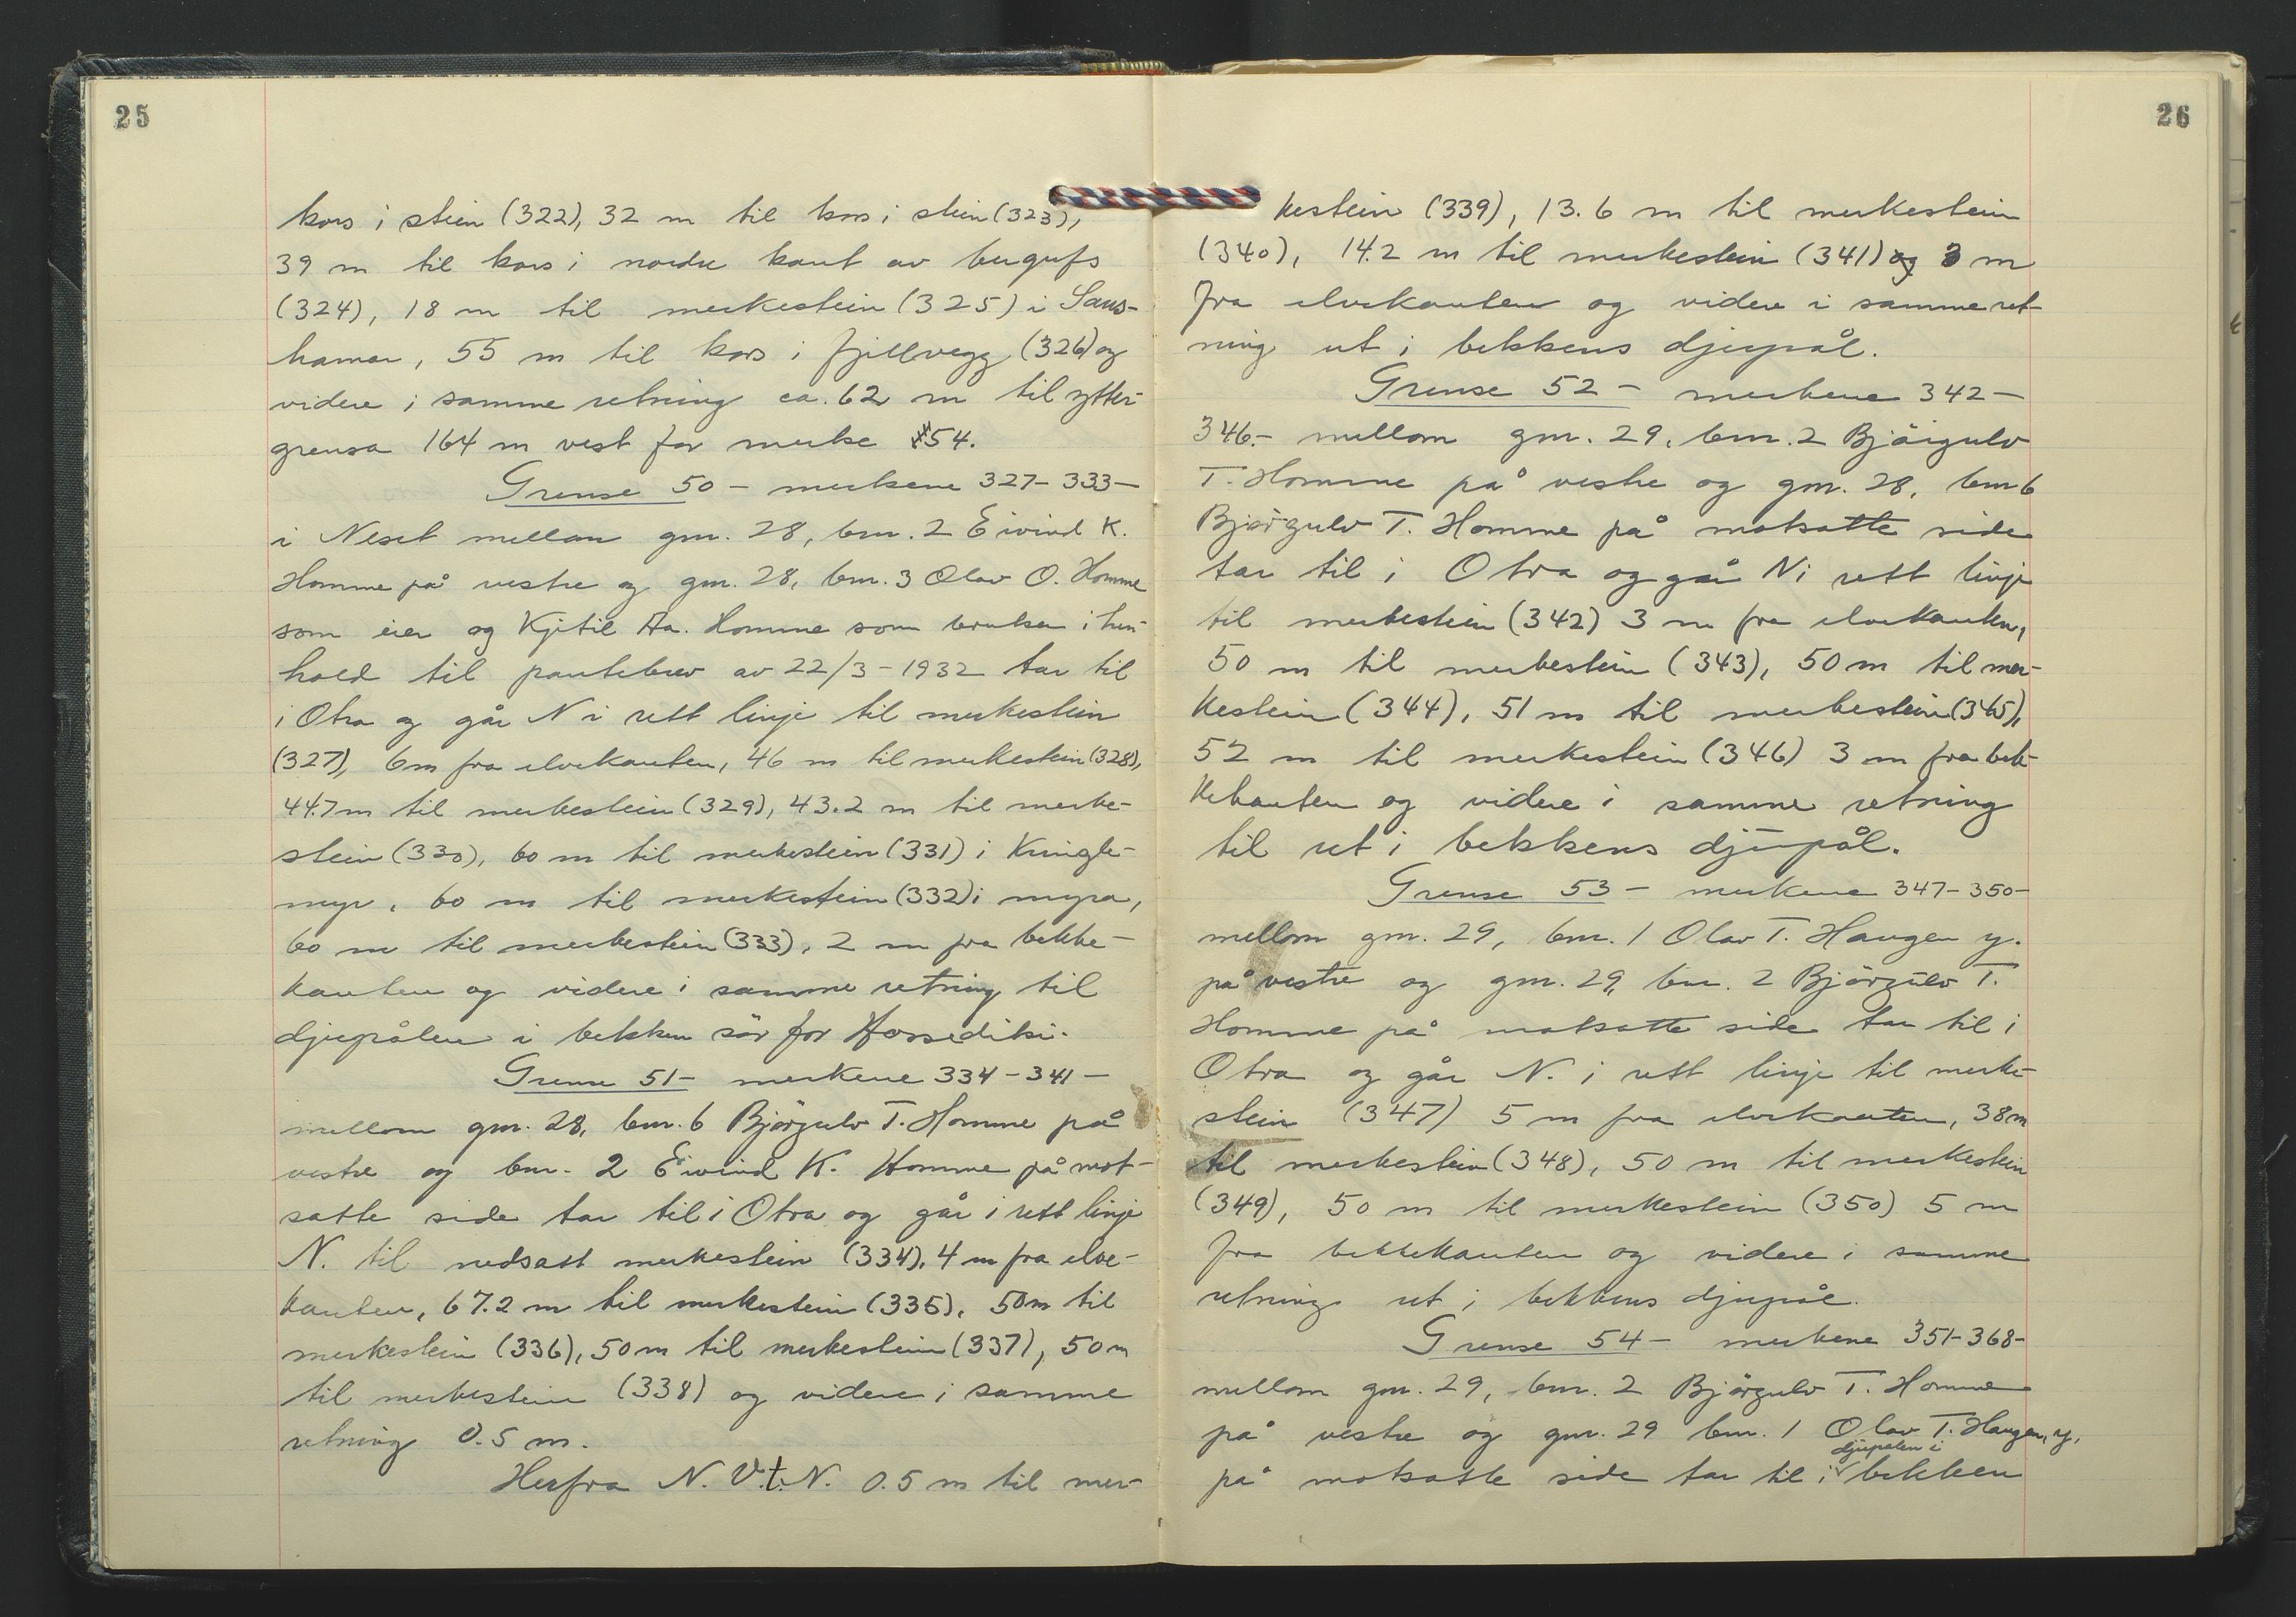 25
kors i stein (322), 32 m til kors i stein (323),
39 m til kors i nordre kant av bergufs
(324), 18 m til merkestein (325) i Saus-
hamar, 55 m til kors i fjellvegg (326) og
videre i samme retning ca. 62 m til ytter-
grensa 164 m vest for merke 54.
Grense 50 - merkene 327-333-
i Neset mellom gnr. 28, bnr. 2 Eivind K.
Homme på vestre og gnr. 28, bnr. 3 Olav O. Homme
som eier og Kjetil Aa. Homme som bruker i hen-
hold til pantebrev av 22/3-1932 tar til
i Otra og går N i rett linje til merkestein
(327), 6m fra elvekanten, 46 m til merkestein (328),
44.7m til merkestein (329), 43.2 m til merke-
stein (330), 60 m til merkestein (331) i Kringle-
myr, 60 m til merkestein (332) i myra,
60 m til merkestein (333), 2 m fra bekke-
kanten og videre i samme retning til
djupålen i bekken sör for
Grense 51- merkene 334-341-
mellom gnr. 28, bnr. 6 Björgulv T. Homme på
vestre og bnr. 2 Eivind K. Homme på mot-
satte side tar til i Otra og går i rett linje
N. til nedsatt merkestein (334), 4 m fra elve-
kanten, 67.2 m til merkestein (335), 50m til
merkestein (336), 50m til merkestein (337), 50m
til merkestein (338) og videre i samme
retning 0.5 m.
Herfra N.V.t.N. 0.5 m til mer-
26
kestein (339), 13.6 m til merkestein
(340), 14.2 m til merkestein (341) og 3 m
fra elvekanten og videre i samme ret-
ning ut i bekkens djupål.
Grense 52 - merkene 342-
346.- mellom gnr. 29, bnr. 2 Björgulv
T. Homme på vestre og gnr. 28, bnr 6
Björgulv T. Homme på motsatte side
tar til i Otra og går N i rett linje
til merkestein (342) 3 m fra elvekanten,
50 m til merkestein (343), 50 m til mer-
kestein (344), 51 m til merkestein (345),
52 m til merkestein (346) 3 m fra bek-
kekanten og videre i samme retning
til ut i bekkens djupål.
Grense 53 - merkene 347-350-
mellom gnr. 29, bnr. 1 Olav T. Haugen y.
på vestre og gnr. 29, bnr. 2 Björgulv T.
Homme på motsatte side tar til i
Otra og går N. i rett linje til merke-
stein (347) 5 m fra elvekanten, 38m
til merkestein (348), 50 m til merkestein
(349), 50 m til merkestein (350) 5 m
fra bekkekanten og videre i samme
retning ut i bekkens djupål.
Grense 54 - merkene 351-368-
mellom gnr. 29, bnr. 2 Björgulv T. Homme
på vestre og gnr. 29 bnr. 1 Olav T. Haugen, y,
djupålen i
på motsatte side tar til i bekken